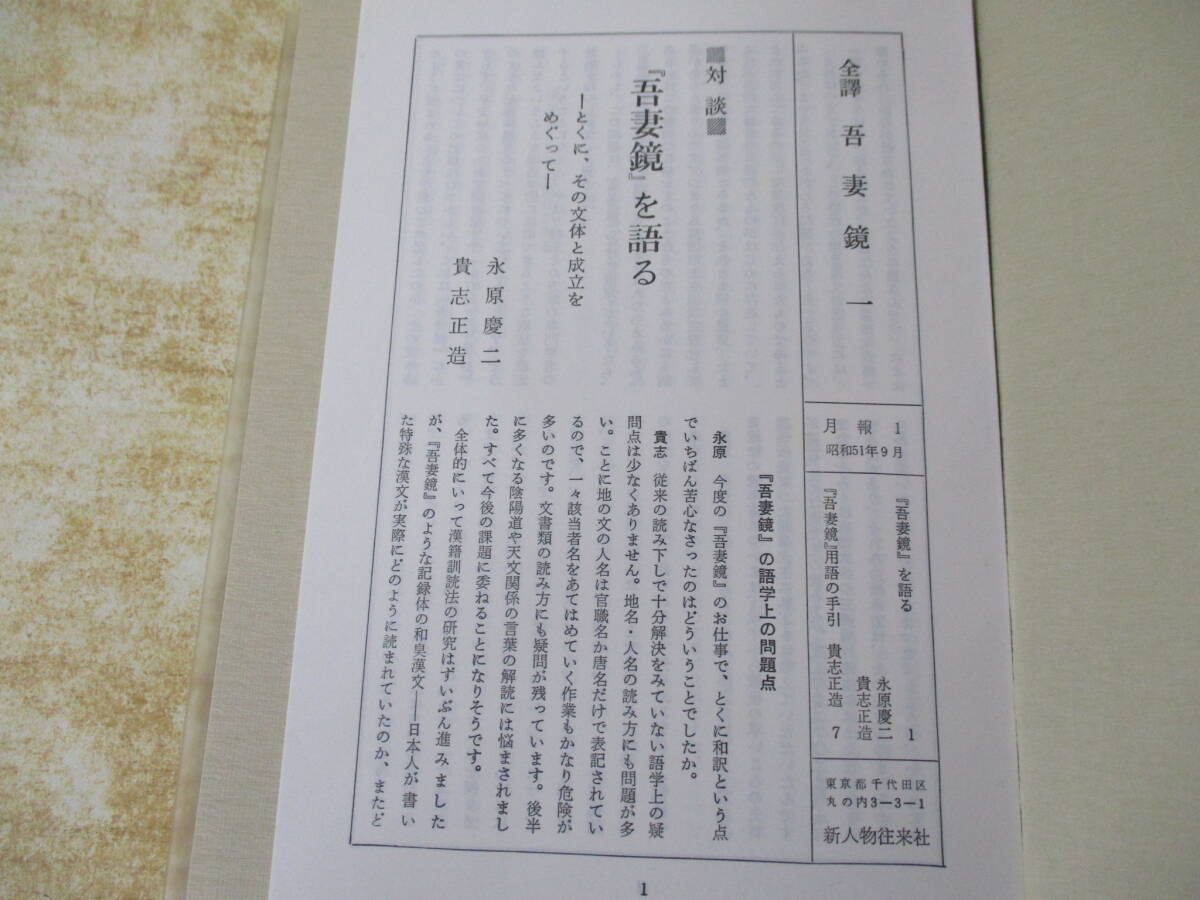 全譯 吾妻鏡 一
月報1
昭和51年9月
『吾妻鏡』を語る
永原慶二
貴志正造 1
『吾妻鏡』用語の手引 貴志正造 7
東京都千代田区
丸の内3―3―1
新人物往来社
■対談■
『吾妻鏡』を語る
―とくに、その文体と成立を
めぐって―
永原慶二
貴志正造
『吾妻鏡』の語学上の問題点
永原 今度の『吾妻鏡』のお仕事で、とくに和訳という点
でいちばん苦心なさったのはどういうことでしたか。
貴志 従来の読み下しで十分解決をみていない語学上の疑
問点は少なくありません。地名・人名の読み方にも問題が多
い。ことに地の文の人名は官職名か唐名だけで表記されてい
るので、一々該当者名をあてはめていく作業もかなり危険が
多いのです。文書類の読み方にも疑問が残っています。後半
に多くなる陰陽道や天文関係の言葉の解読には悩まされまし
た。すべて今後の課題に委ねることになりそうです。
全体的にいって漢籍訓読法の研究はずいぶん進みました
が、『吾妻鏡』のような記録体の和臭漢文――日本人が書い
た特殊な漢文が実際にどのように読まれていたのか、またど
1